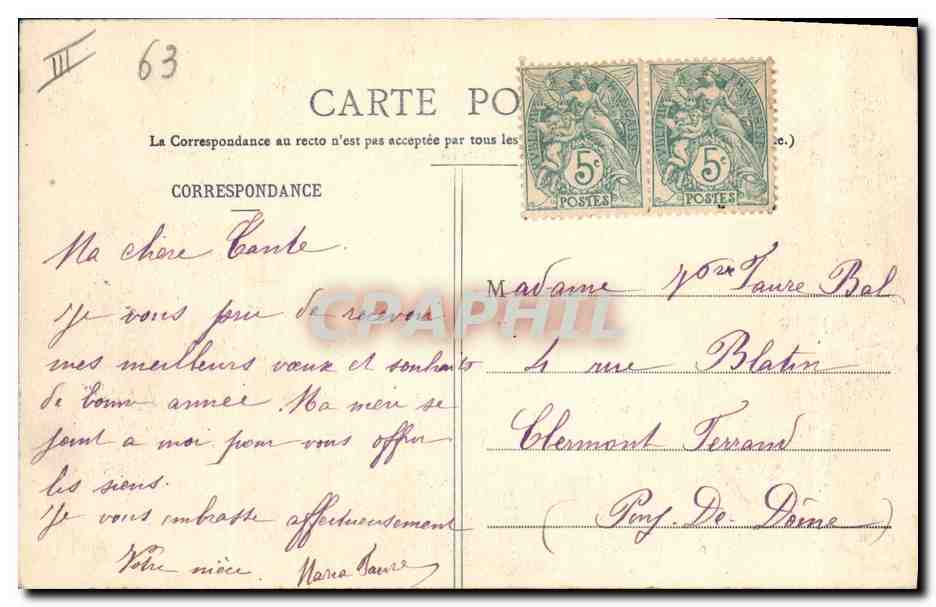 III
63
CARTE PO
La Correspondance au recto n'est pas acceptée par tous les
e.)
5c
POSTES
5c
POSTES
CORRESPONDANCE
Ma chere Tante.
Je vous prie de recevoir
mes meilleurs vœux et souhaits
de bonne année. Ma mère se
joint a moi pour vous offrir
les siens.
Je vous embrasse affectueusement
Votre nièce. Maria Faure
Madame Vve Faure Bal
4 rue Blatin
Clermont Ferrand
(Puy-De-Dôme)
CPAPHIL